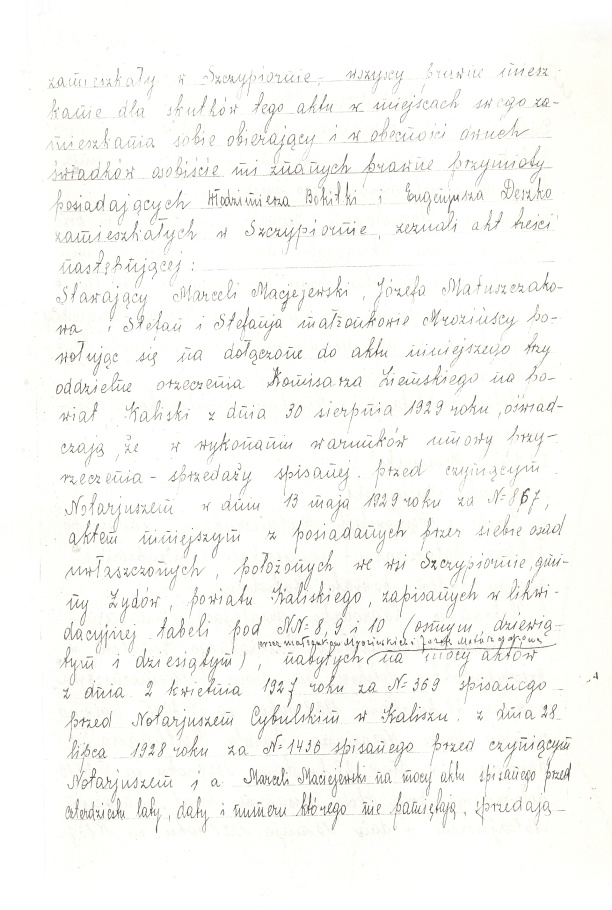 zamieszkały w Szczypiornie, wszyscy prawne miesz-
kanie dla skutków tego aktu w miejscach swego za-
mieszkania sobie obierający i w obecności dwuch
świadków osobiście mi znanych prawne przymioty
posiadających Włodzimierza Bokiłki i Eugenjusza Deszko
zamieszkałych w Szczypiornie, zeznali akt treści
następującej:
Stawający Marceli Maciejewski, Józefa Matuszczako-
wa i Stefan i Stefanja małżonkowie Mrozińscy po-
wołując się na dołączone do aktu niniejszego trzy
oddzielne orzeczenia Komisarza Ziemskiego na po-
wiat Kaliski z dnia 30 sierpnia 1929 roku, oświad-
czają, że w wykonaniu warunków umowy przy-
rzeczenia - sprzedaży spisanej przed czyniącym
Notarjuszem w dniu 13 maja 1929 roku za № 867,
aktem niniejszym z posiadanych przez siebie osad
uwłaszczonych, położonych we wsi Szczypiornie, gmi-
ny Żydów, powiatu Kaliskiego, zapisanych w likwi-
dacyjnej tabeli pod NN. 8, 9 i 10 (ósmym dziewią-
tym i dziesiątym), nabytych na mocy aktów
z dnia 2 kwietnia 1927 roku za № 369 spisanego
przed Notarjuszem Cybulskim w Kaliszu i z dnia 28
lipca 1928 roku za № 1436 spisanego przed czyniącym
Notarjuszem i a Marceli Maciejewski na mocy aktu spisanego przed
czterdziestu laty, daty i numeru którego nie pamiętają, sprzedają